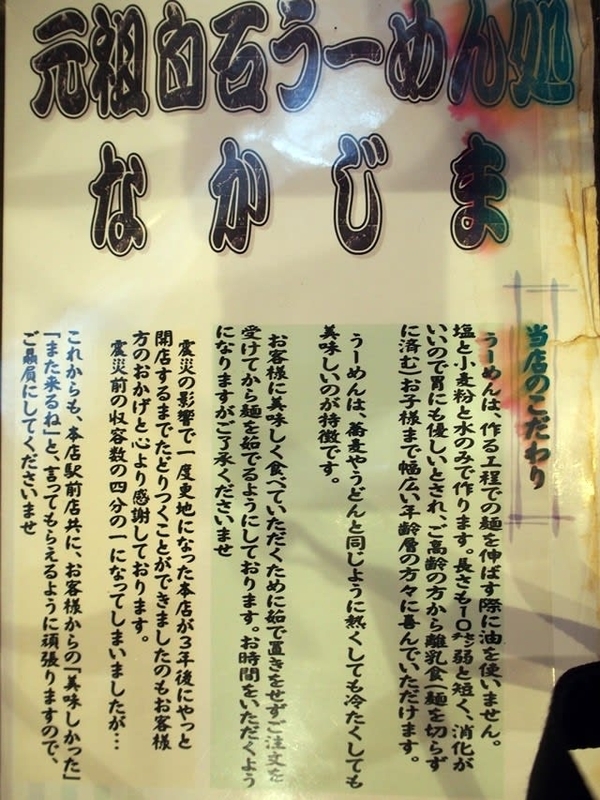 元祖白石うーめん処
なかじま
当店のこだわり
うーめんは、作る工程での麺を伸ばす際に油を使いません。
塩と小麦粉と水のみで作ります。長さも10㌢弱と短く、消化が
いいので胃にも優しいとされ、ご高齢の方から離乳食(麺を切らず
に済む)お子様まで幅広い年齢層の方々に喜んでいただけます。
うーめんは、蕎麦やうどんと同じように熱くしても冷たくしても
美味しいのが特徴です。
お客様に美味しく食べていただくために茹で置きをせずご注文を
受けてから麺を茹でるようにしております。お時間をいただくよう
になりますがご了承くださいませ
震災の影響で一度更地になった本店が3年後にやっと
開店するまでたどりつくことができましたのもお客様
方のおかげと心より感謝しております。
震災前の収容数の四分の一になってしまいましたが…
これからも、本店駅前店共に、お客様からの「美味しかった」
「また来るね」と、言ってもらえるように頑張りますので、
ご贔屓にしてくださいませ